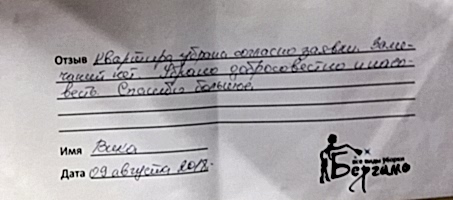 Отзыв Квартира убрана согласно заявки. Заме-
чаний нет. Убрано добросовестно и на со-
весть. Спасибо большое.
Имя Вика
Дата 09 августа 2017г.
все виды уборки
Бергамо